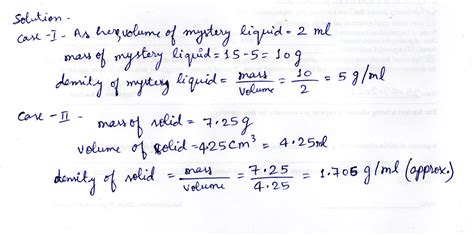 Solution -
Case - I - As here volume of mystery liquid = 2 ml
mass of mystery liquid = 15 - 5 = 10 g
density of mystery liquid = mass / volume = 10 / 2 = 5 g/ml
Case - II - mass of solid = 7.25 g
volume of solid = 4.25 cm³ = 4.25 ml
density of solid = mass / volume = 7.25 / 4.25 = 1.705 g/ml (approx.)